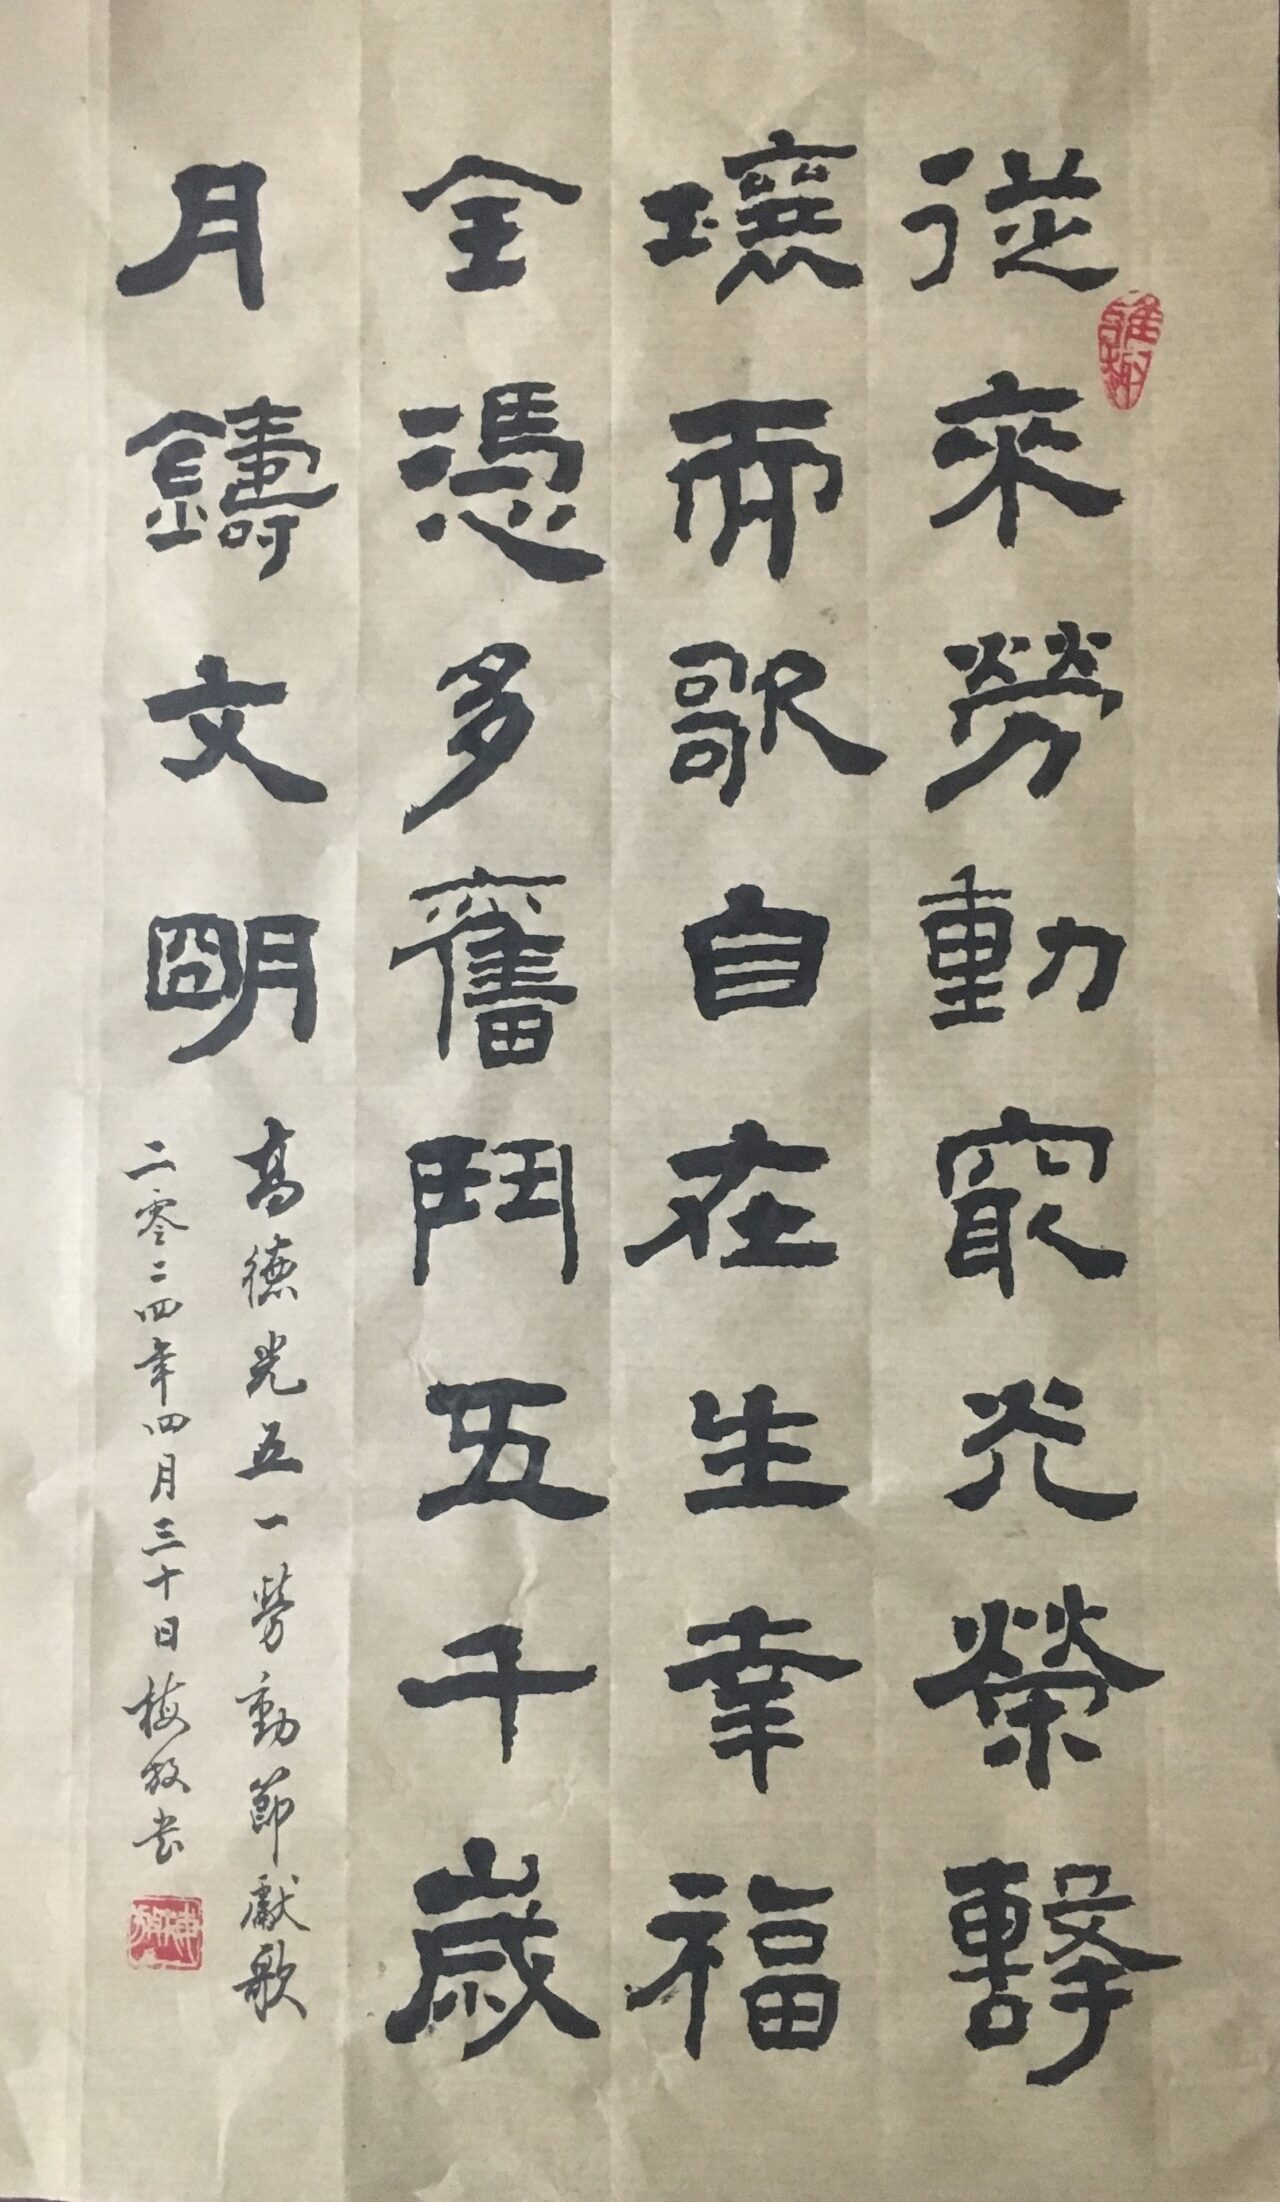 從來勞動最光榮擊
壤而歌自在生幸福
全憑多奮鬥五千歲
月鑄文明
高德光五一勞動節獻歌
二零二四年四月三十日梅放書
雅趣